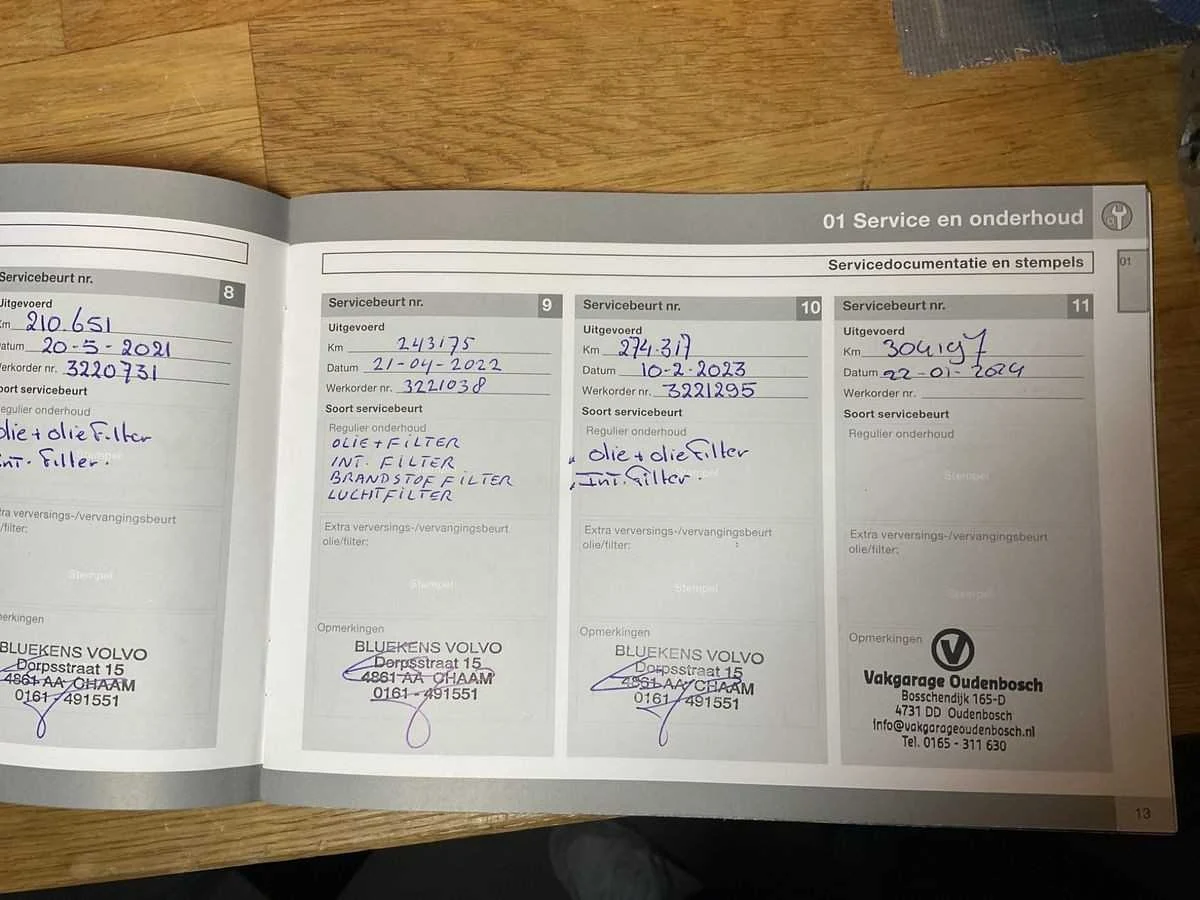 01 Service en onderhoud
Servicedocumentatie en stempels
01
Servicebeurt nr.
8
Uitgevoerd
Km 210.651
Datum 20-5-2021
Werkorder nr. 3220731
Soort servicebeurt
Regulier onderhoud
olie + olieFilter
Int. Filter.
Stempel
Extra verversings-/vervangingsbeurt
olie/filter:
Stempel
Opmerkingen
BLUEKENS VOLVO
Dorpsstraat 15
4861 AA CHAAM
0161 - 491551
Servicebeurt nr.
9
Uitgevoerd
Km 243175
Datum 21-04-2022
Werkorder nr. 3221038
Soort servicebeurt
Regulier onderhoud
OLIE + FILTER
INT. FILTER
BRANDSTOF FILTER
LUCHTFILTER
Extra verversings-/vervangingsbeurt
olie/filter:
Stempel
Opmerkingen
BLUEKENS VOLVO
Dorpsstraat 15
4861 AA CHAAM
0161 - 491551
Servicebeurt nr.
10
Uitgevoerd
Km 274.317
Datum 10-2-2023
Werkorder nr. 3221295
Soort servicebeurt
Regulier onderhoud
olie + olieFilter
Int. Filter.
Stempel
Extra verversings-/vervangingsbeurt
olie/filter:
Stempel
Opmerkingen
BLUEKENS VOLVO
Dorpsstraat 15
4861 AA CHAAM
0161 - 491551
Servicebeurt nr.
11
Uitgevoerd
Km 304197
Datum 22-01-2024
Werkorder nr.
Soort servicebeurt
Regulier onderhoud
Stempel
Extra verversings-/vervangingsbeurt
olie/filter:
Stempel
Opmerkingen
V
Vakgarage Oudenbosch
Bosschendijk 165-D
4731 DD Oudenbosch
info@vakgarageoudenbosch.nl
Tel. 0165 - 311 630
13